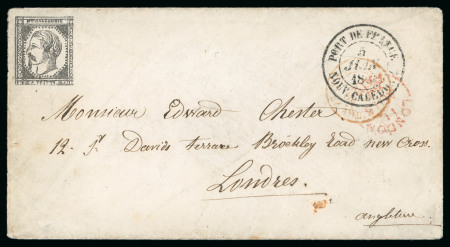 PORT DE FRANCE
5
JUIN
18
NOUV. CALED
LONDON
Monsieur Edward Chester
12. St Davids terrace Brockley Road new Cross.
Londres.
Angleterre